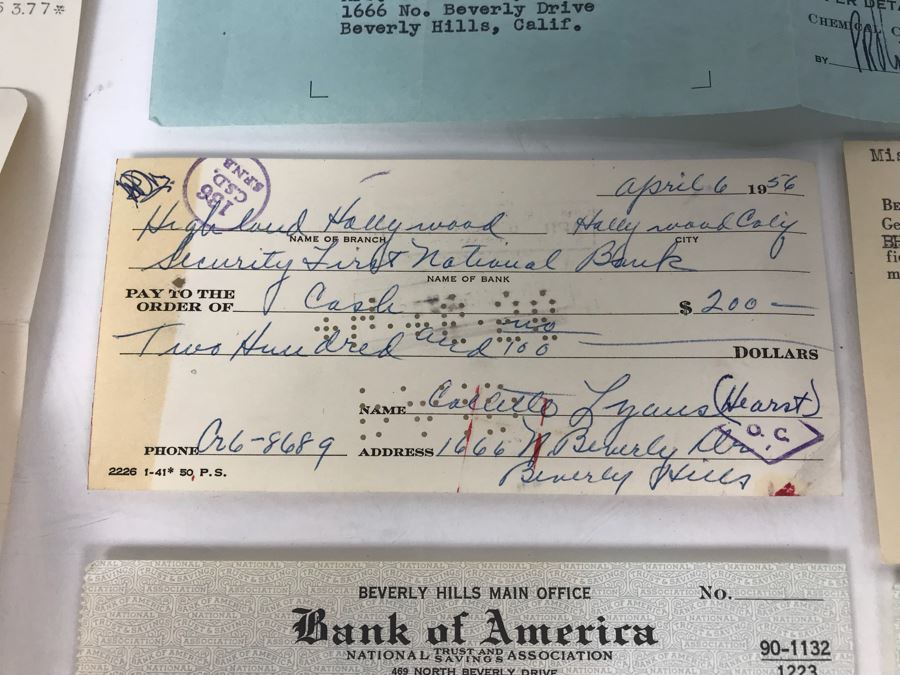 3.77*
1666 No. Beverly Drive
Beverly Hills, Calif.
CHEMICAL
BY
166
C.S.D.
S.F.N.B
April 6 1956
Highland Hollywood Hollywood Calif
NAME OF BRANCH CITY
Security First National Bank
NAME OF BANK
PAY TO THE
ORDER OF Cash $ 200 —
Two Hundred and no/100 DOLLARS
NAME Collette Lyons (Hearst)
O.C.
PHONE Cr6-8689 ADDRESS 1666 N Beverly Dr.
Beverly Hills
2226 1-41* 50, P.S.
Mis
BEVERLY HILLS MAIN OFFICE No.
Bank of America
NATIONAL TRUST AND SAVINGS ASSOCIATION
469 NORTH BEVERLY DRIVE
90-1132
1223